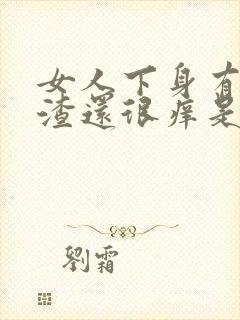 女人下身有
渣還很痒是
劉霜